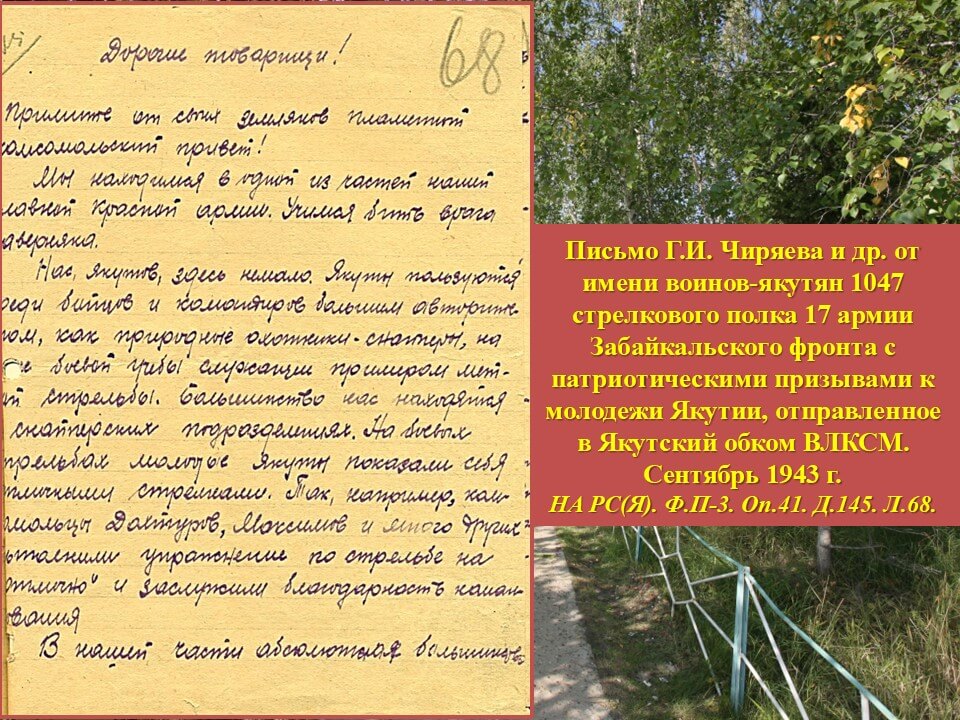 68
Дорогие товарищи!
Примите от своих земляков пламенный
комсомольский привет!
Мы находимся в одной из частей нашей
лавной Красной армии. Учимся бить врага
аверняка.
Нас, якутов, здесь немало. Якуты пользуются
реди бойцов и командиров большим авторите-
ом, как природные охотники-снайперы, на
боевой учебы служащие примером мет-
й стрельбы. Большинство нас находятся
снайперских подразделениях. На боевых
трельбах молодые якуты показали себя
тличными стрелками. Так, например, ком-
мольцы Дохтуров, Максимов и много других
ыполнили упражнение по стрельбе на
отлично" и заслужили благодарность коман-
вания
В нашей части абсолютная большинов
Письмо Г.И. Чиряева и др. от
имени воинов-якутян 1047
стрелкового полка 17 армии
Забайкальского фронта с
патриотическими призывами к
молодежи Якутии, отправленное
в Якутский обком ВЛКСМ.
Сентябрь 1943 г.
НА РС(Я). Ф.П-3. Оп.41. Д.145. Л.68.